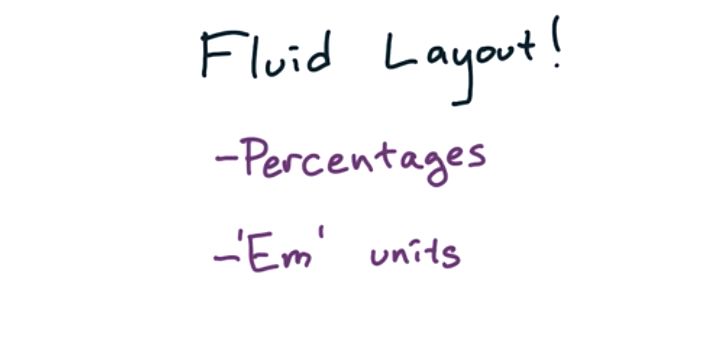 Fluid Layout!
-Percentages
-'Em' units